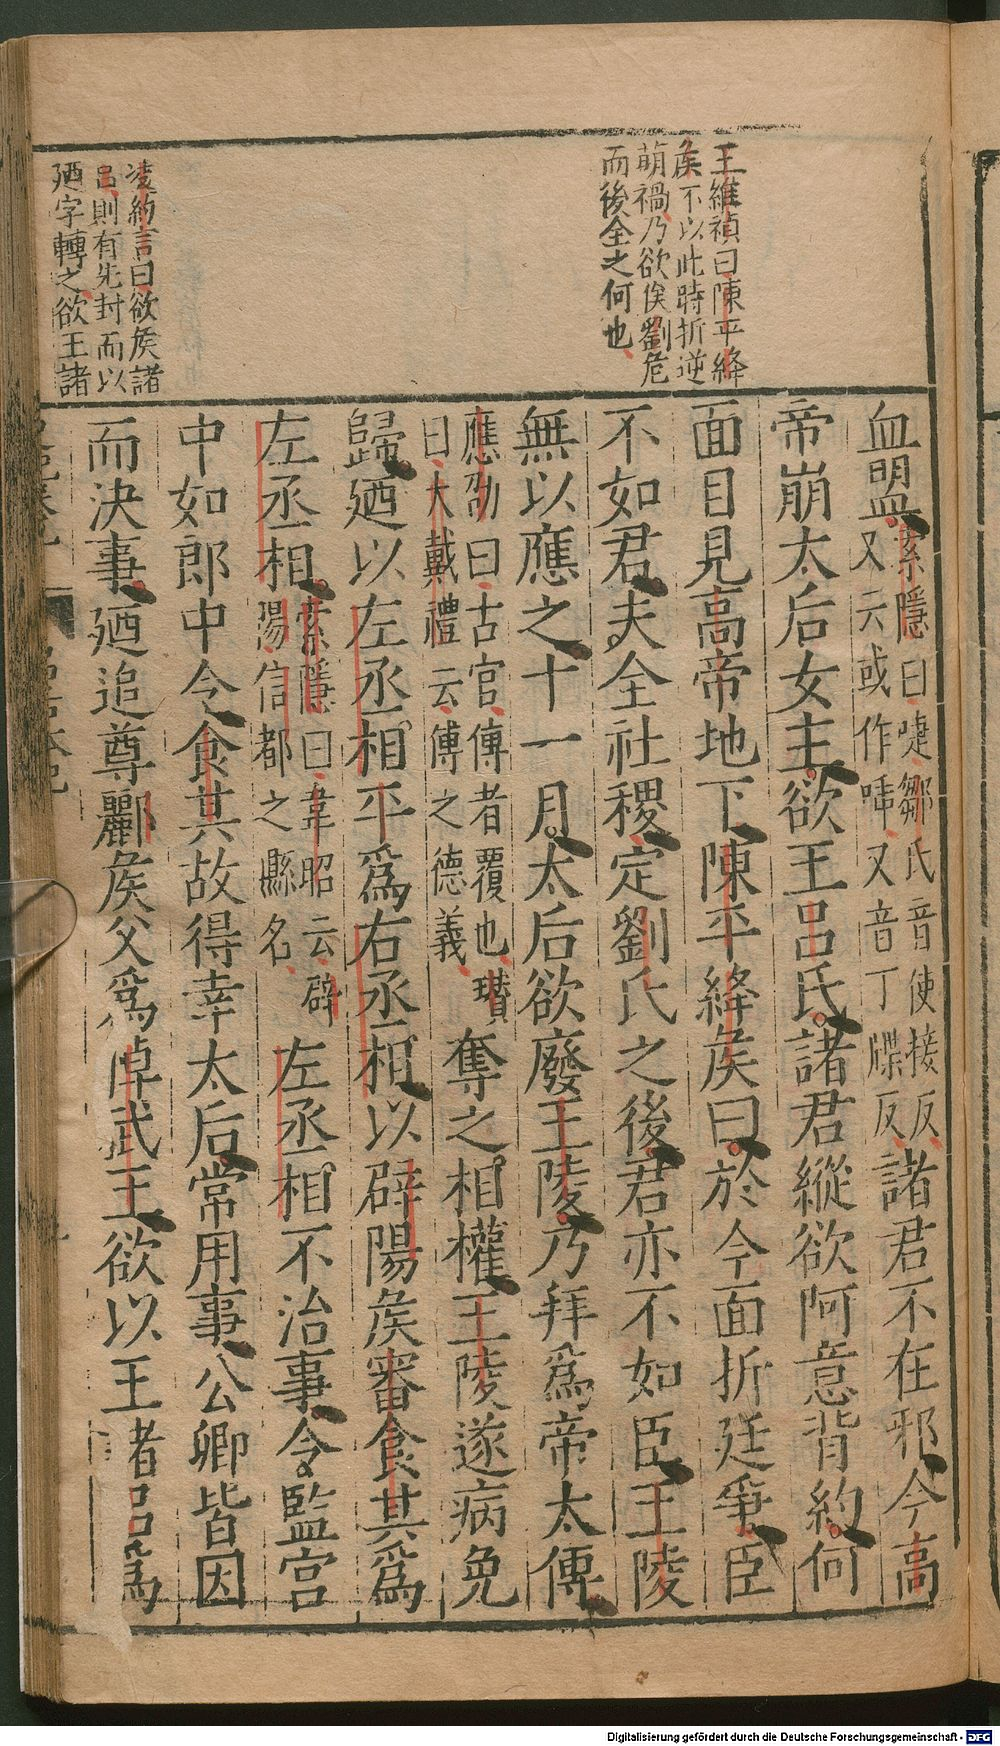 王維禎曰陳平絳
矦不以此時折逆
萌禍乃欲俟劉危
而後全之何也
凌約言曰欲矦諸
呂則有先封而以
廼字轉之欲王諸
血盟索隱曰啑鄒氏音使接反
又云或作喢又音丁牒反諸君不在邪今高
帝崩太后女主欲王呂氏諸君縱欲阿意背約何
面目見高帝地下陳平絳矦曰於今面折廷爭臣
不如君夫全社稷定劉氏之後君亦不如臣王陵
無以應之十一月太后欲廢王陵乃拜爲帝太傅
應劭曰古官傅者覆也瓚
曰大戴禮云傅之德義奪之相權王陵遂病免
歸廼以左丞相平爲右丞相以辟陽矦審食其爲
左丞相索隱曰韋昭云辟
陽信都之縣名左丞相不治事令監宮
中如郎中令食其故得幸太后常用事公卿皆因
而決事廼追尊酈矦父爲悼武王欲以王諸呂爲
Digitalisierung gefördert durch die Deutsche Forschungsgemeinschaft - DFG